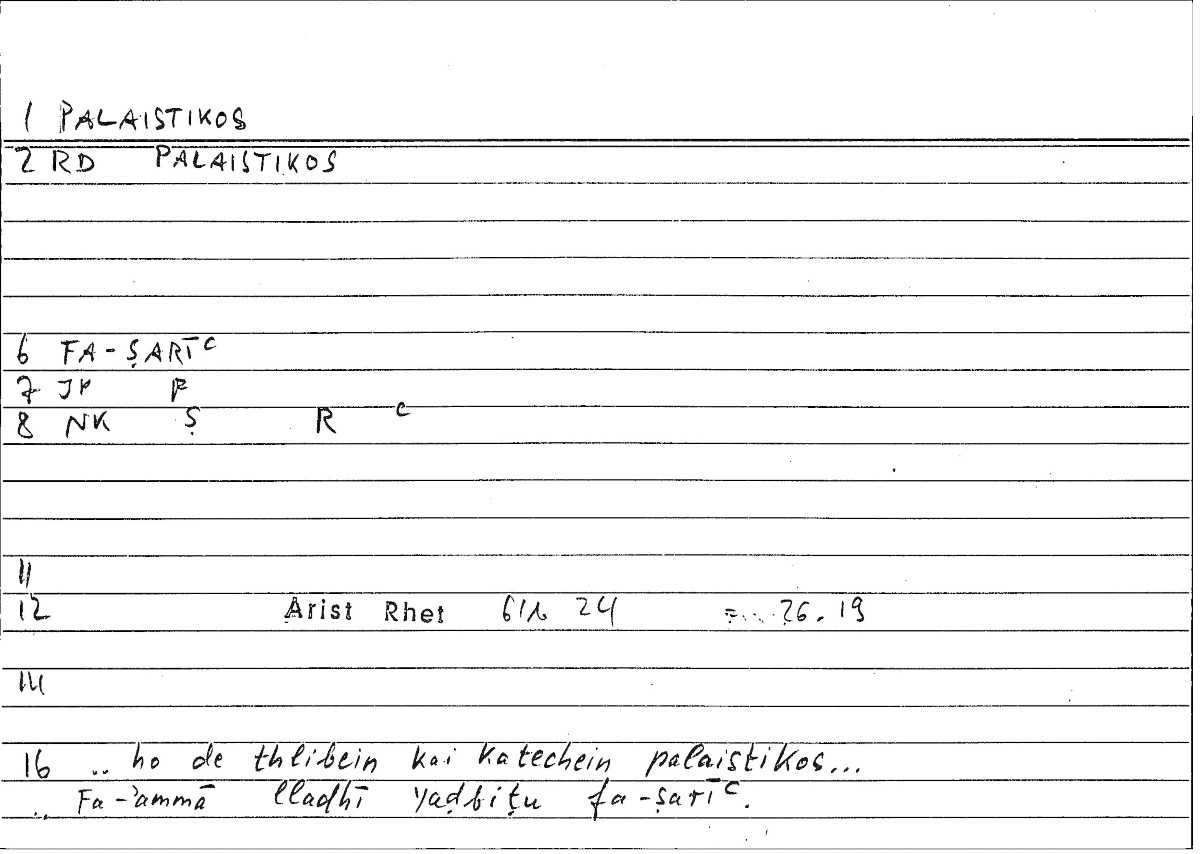 1 PALAISTIKOS
2 RD PALAISTIKOS
6 FA-ṢARĪᶜ
7 JP F
8 NK Ṣ R ᶜ
11
12 Arist Rhet 61b 24 = 26.19
14
16 .. ho de thlibein kai katechein palaistikos...
.. Fa-ʾammā lladhī yaḍbiṭu fa-ṣarīᶜ.